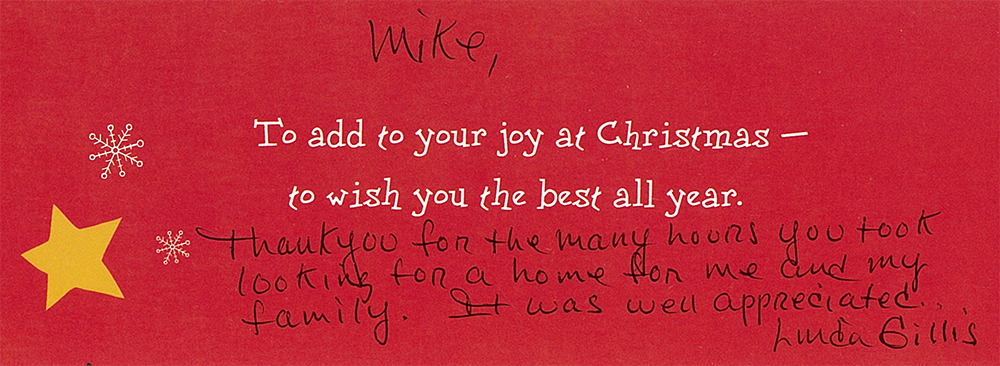 Mike,
To add to your joy at Christmas —
to wish you the best all year.
Thankyou for the many hours you took
looking for a home for me and my
family. It was well appreciated..
Linda Gillis